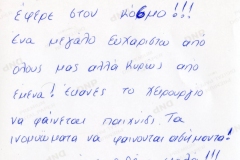 έφερε στον κόσμο!!!
Ένα μεγάλο Ευχαριστώ από
όλους μας αλλά Κυρίως από
Εμένα! Έκανες το Χειρουργείο
να φαίνεται παιχνίδι τα
ινομυώματα να φαίνονται ασήμαντα!